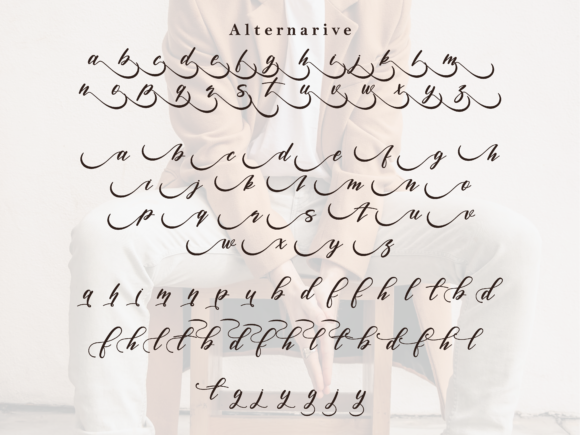 Alternarive
a b c d e f g h i j k l m
n o p q r s t u v w x y z
a b c d e f g h
i j k l m n o
p q r s t u v
w x y z
q h i m n p u b d f f h l t b d
f h l t b d f h l t b d f h l
t g j y g j y